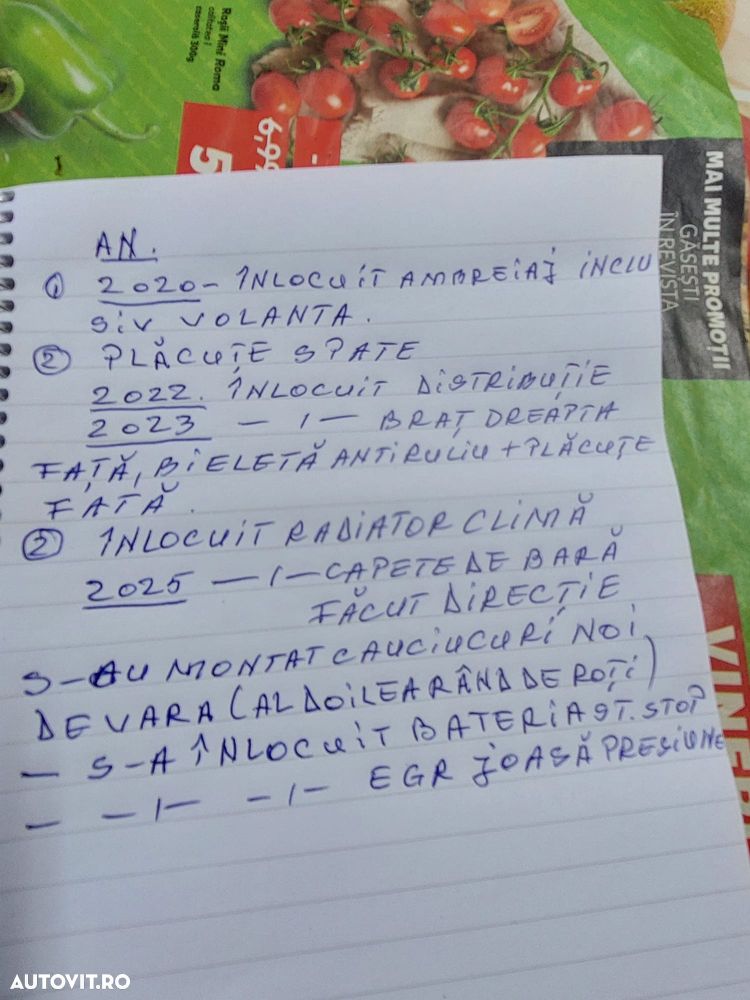 Roșii Mini Roma
calitatea I
caserolă 300g
6,99
5
MAI MULTE PROMOȚII
GĂSEȘTI
ÎN REVISTA
AN.
① 2020 - ÎNLOCUIT AMBREIAJ INCLU
SIV VOLANTA.
② PLĂCUȚE SPATE
2022. ÎNLOCUIT DISTRIBUȚIE
2023 — 1 — BRAȚ DREAPTA
FAȚĂ, BIELETĂ ANTIRULIU + PLĂCUȚE
FAȚĂ.
② ÎNLOCUIT RADIATOR CLIMĂ
2025 — 1 — CAPETE DE BARĂ
FĂCUT DIRECȚIE
S-AU MONTAT CAUCIUCURI NOI
DE VARA (AL DOILEA RÂND DE ROȚI)
— S-A ÎNLOCUIT BATERIA ST. STOP
— — 1 — — 1 — EGR JOASĂ PRESIUNE
AUTOVIT.RO